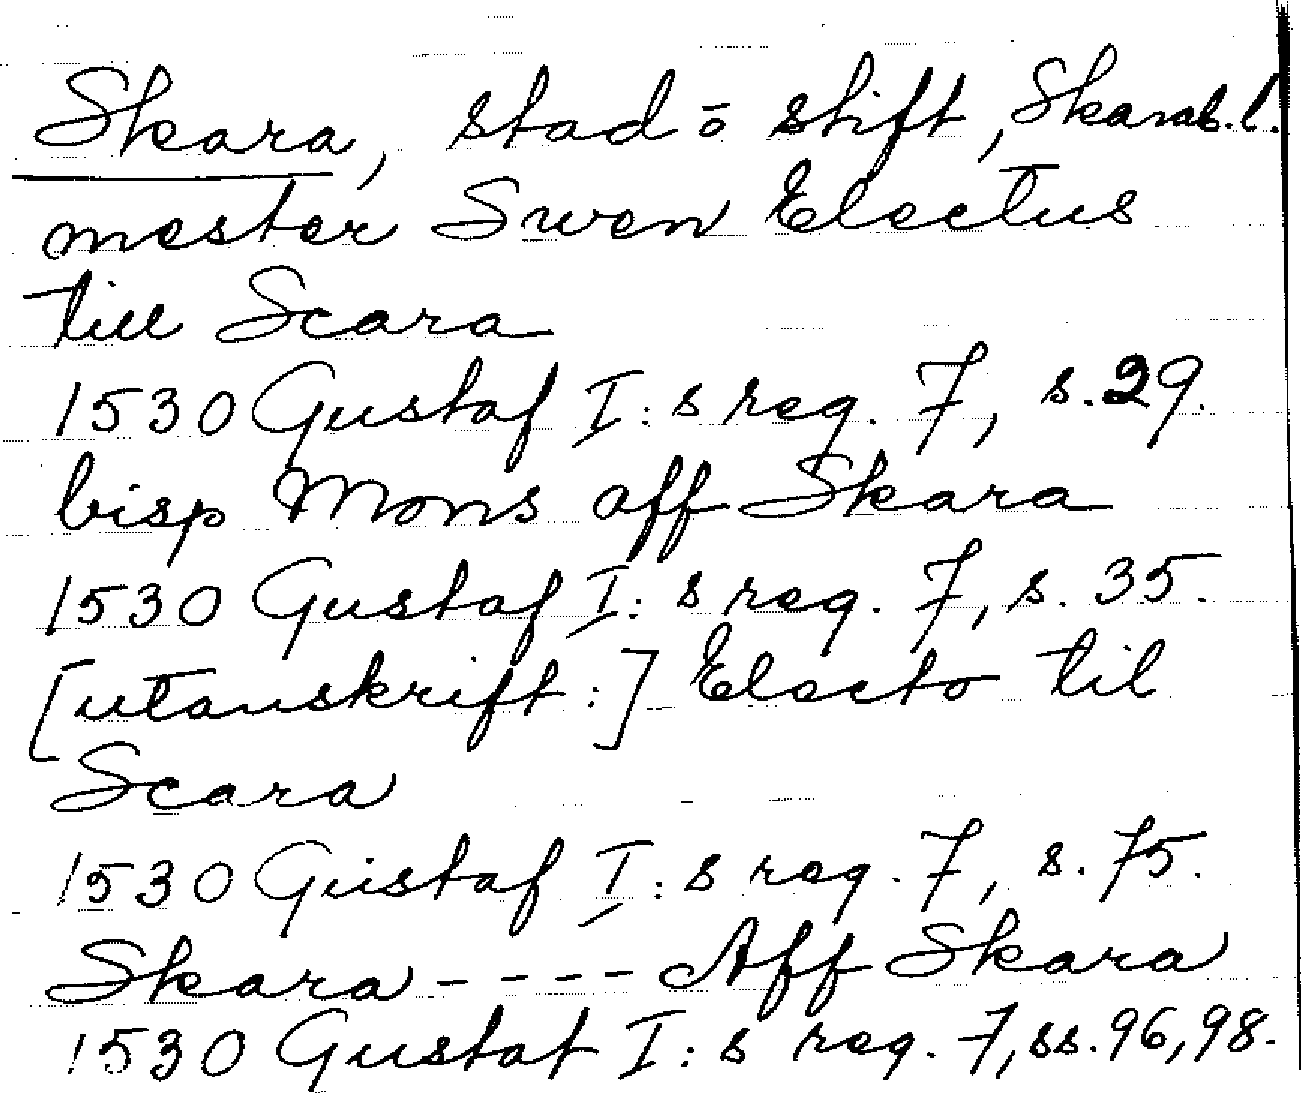 Skara, stad o stift, Skarab.l.
mester Swen Electus
till Scara
1530 Gustaf I:s reg. 7, s. 29.
bisp Mons aff Skara
1530 Gustaf I:s reg. 7, s. 35.
[utanskrift:] Electo til
Scara
1530 Gustaf I:s reg. 7, s. 75.
Skara - - - - Aff Skara
1530 Gustaf I:s reg. 7, ss. 96, 98.